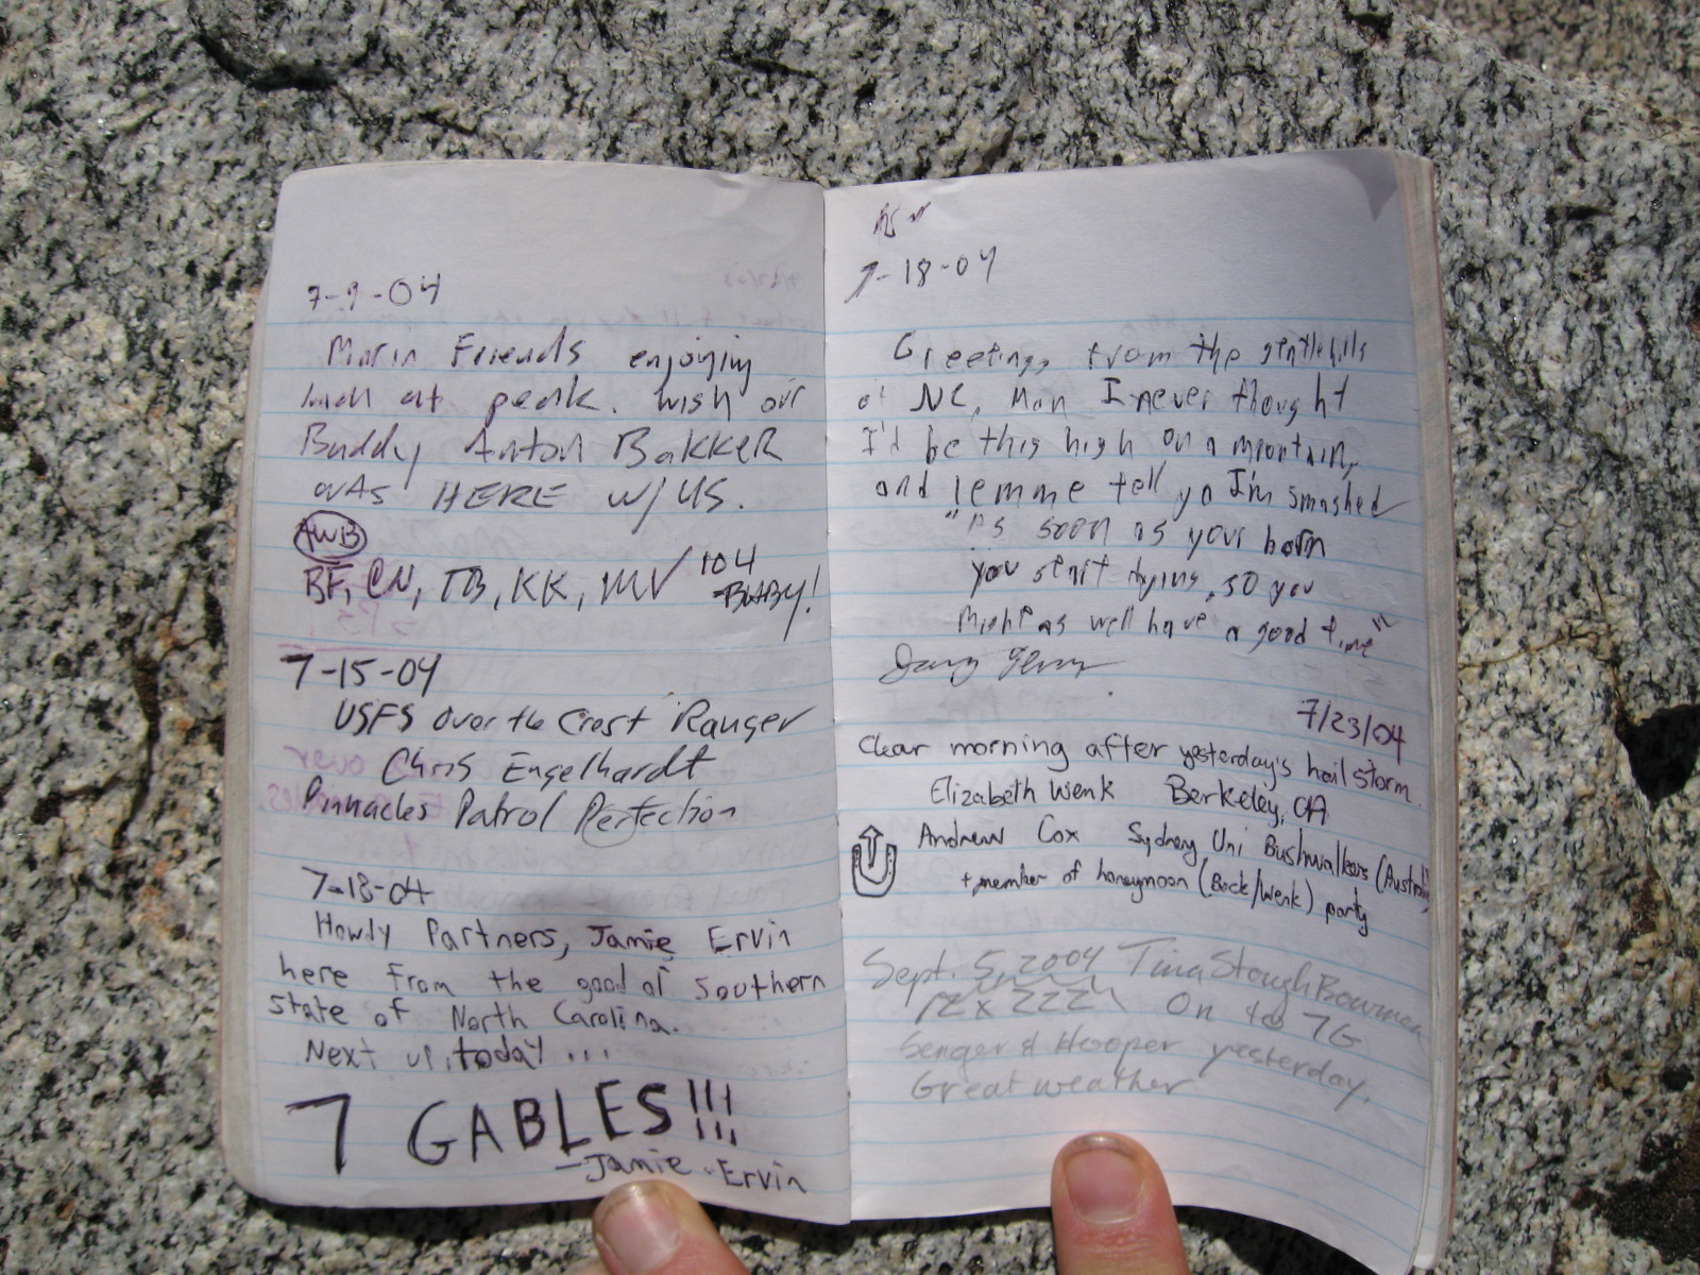 7-9-04
Marin Friends enjoying
lunch at peak. wish our
Buddy Anton BakkeR
was HERE w/ us.
AWB
BF, CN, TB, KK, MV '04
BABY!
7-15-04
USFS Over the Crest Ranger
Chris Engelhardt
Pinnacles Patrol Perfection
7-18-04
Howdy Partners, Jamie Ervin
here from the good ol southern
state of North Carolina.
Next up, today ...
7 GABLES!!!
- Jamie Ervin
7-18-04
Greetings from the gentle hills
of NC, Man I never thought
I'd be this high on a mountain,
and lemme tell ya I'm smashed
"As soon as your born
you start dying, so you
Might as well have a good time"
7/23/04
Clear morning after yesterday's hail storm.
Elizabeth Wenk Berkeley, CA
Andrew Cox Sydney Uni Bushwalkers (Australia)
+ member of honeymoon (Beck/Wenk) party
Sept. 5, 2004 Tina Stough Bowman
On to 7G
Senger & Hooper yesterday.
Great weather